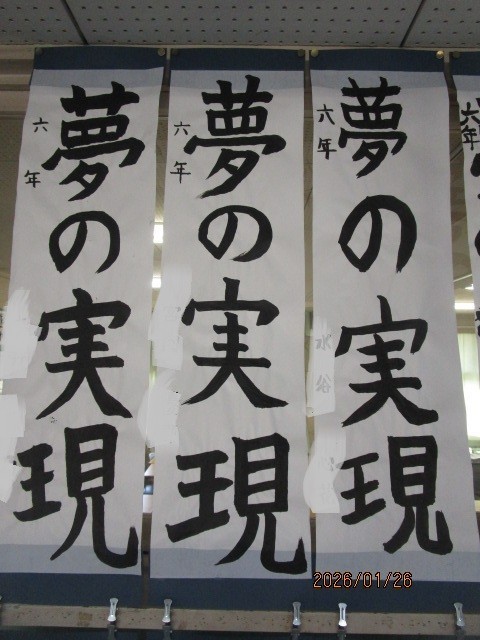 六年
夢の実現
水谷
六年
夢の実現
六年
夢の実現
六年
2026/01/26